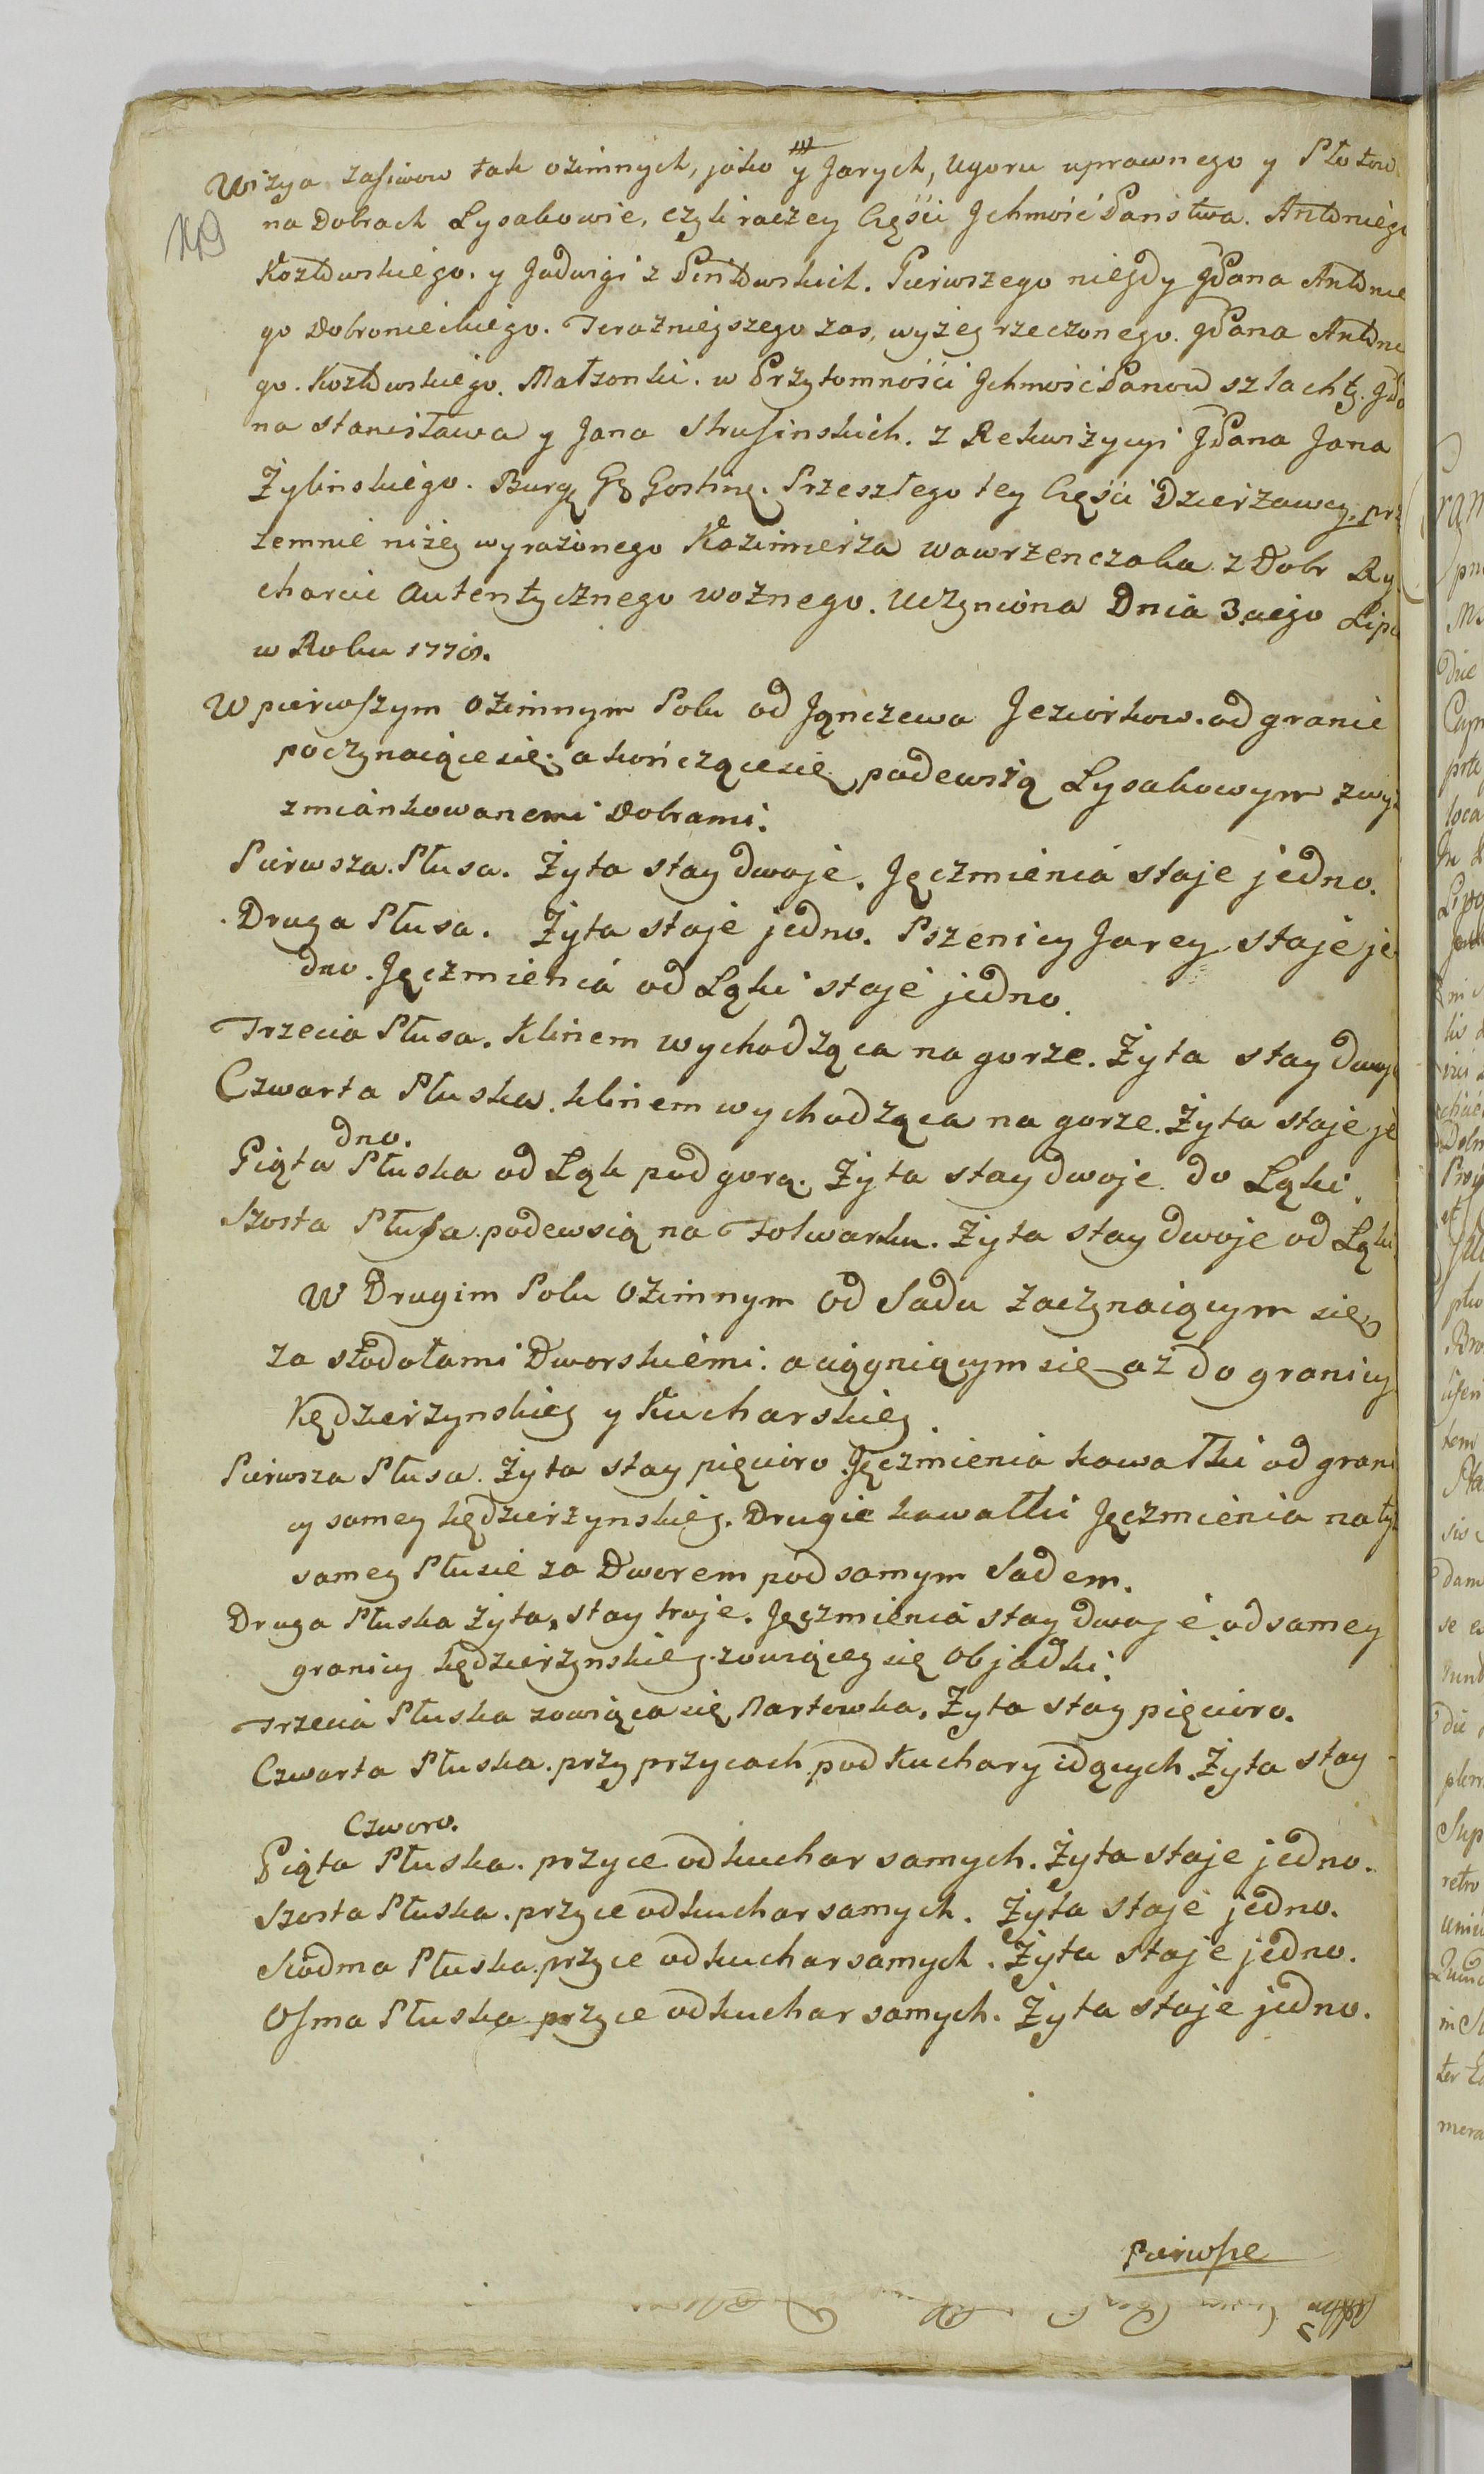 Wizya zasiwow tak ozimnych, jako y Jarych, Ugoru uprawnego y Płotow
na Dobrach Lysakowie, czyli raczey Części Jchmość Państwa. Antoniego
Kozłowskiego. y Jadwigi z Pniewskich. Pierwszego niegdy JPana Antonie
go Dobronieckiego. Teraznieyszego zas, wyżey rzeczonego. JPana Antonie
go. Kozłowskiego. Małżonki. w Przytomności Jchmość Panow szlachty. JPa
na Stanisława y Jana Strusinskich. z Rekwizycyi JPana Jana
Żylinskiego. Burg G Gostin. Przeszłego tey Części Dzierżawcy. prz
zemnie niżey wyrażonego Kazimierza Wawrzenczaka z Dobr Ry
charcic Autentycznego woznego. Uczyniona Dnia 3ciego Lipca
w Roku 177
W pierwszym Ozimnym Polu od Jączewa Jeziorkow. od granic
poczynaiące się, a kończące się podewsią Lysakowym zwyż
zmiankowanemi Dobrami.
Pierwsza Płusa. Żyta stay dwoje. Jęczmienia staje jedno.
Druga Płusa. Żyta staje jedno. Pszenicy Jarey staje je
dno. Jęczmienia od Łąki staje jedno.
Trzecia Płusa. Klinem wychodząca na gorze. Żyta stay dwoje
Czwarta Płuska. klinem wychodząca na gorze. Żyta staje je
dno.
Piąta Płuska od Łąk pod gorą. Żyta stay dwoje do Łąki.
Szosta Płusa podewsią na Folwarku. Żyta stay dwoje od Łąki
W Drugim Polu Ozimnym od Sadu zaczynaiącym się
za stodołami Dworskiemi. a ciągniącym się aż do granicy
Kędzierzynskiey y Kucharskiey.
Pierwsza Płusa. Żyta stay pięcioro. Jęczmienia kawałki od grani
cy samey kędzierzynskiey. Drugie kawałki Jęczmienia na ty
samey Płusie za Dworem pod samym Sadem.
Druga Płuska Żyta, stay troje. Jęczmienia stay dwoje od samey
granicy kędzierzynskiey zowiącey się Objadki.
Trzecia Płuska zowiąca się Martowka. Żyta stay pięcioro.
Czwarta Płuska. przy przycach pod Kuchary idących. Żyta stay
Czworo.
Piąta Płuska. przyce od kuchar samych. Żyta staje jedno.
Szosta Płuska. przyce od kuchar samych. Żyta staje jedno.
Siodma Płuska. przyce od kuchar samych. Żyta staje jedno.
Osma Płuska przyce od kuchar samych. Żyta staje jedno.
Pierwsze